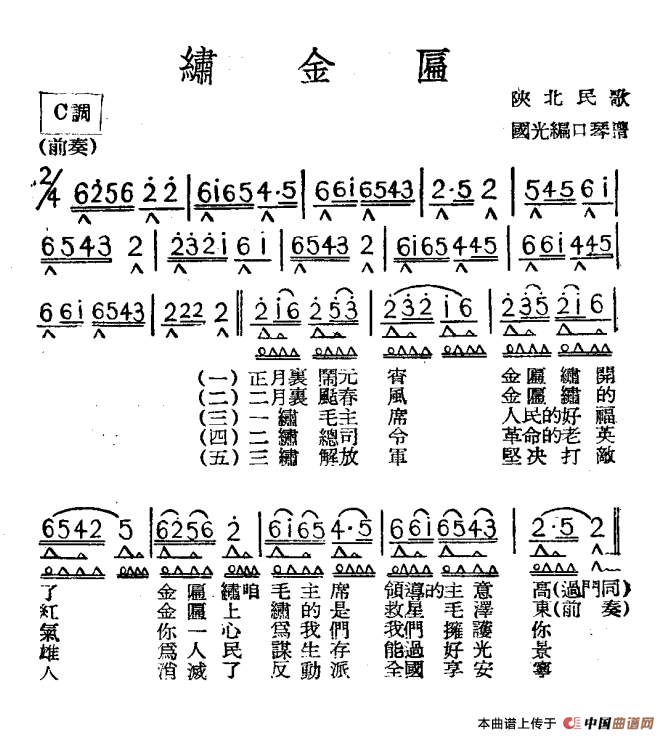 繡金匾
C調
陝北民歌
國光編口琴譜
(前奏)
2/4 6256 22 | 6i654·5 | 66i6543 | 2·5 2 | 5456 6i |
6543 2 | 232i 6i | 6543 2 | 6i65445 | 66i445 |
66i 6543 | 222 2 ‖ 2i6 253 | 232 i6 | 235 2i6 |
(一)正月裏鬧元宵 金匾繡開
(二)二月裏颳春風 金匾繡的
(三)一繡毛主席 人民的好福
(四)二繡總司令 革命的老英
(五)三繡解放軍 堅决打敵
6542 5 | 6256 2 | 6i65 4·5 | 66i 6543 | 2·5 2 ‖
了 金匾繡咱毛主席領導的主意高(過門同
紅 金匾上繡的是救星毛澤東(前奏)
氣 你一心爲我們我們擁護你
雄 爲人民謀生存能過好光景
人 消滅了反動派全國享安寧
本曲谱上传于 中国曲谱网